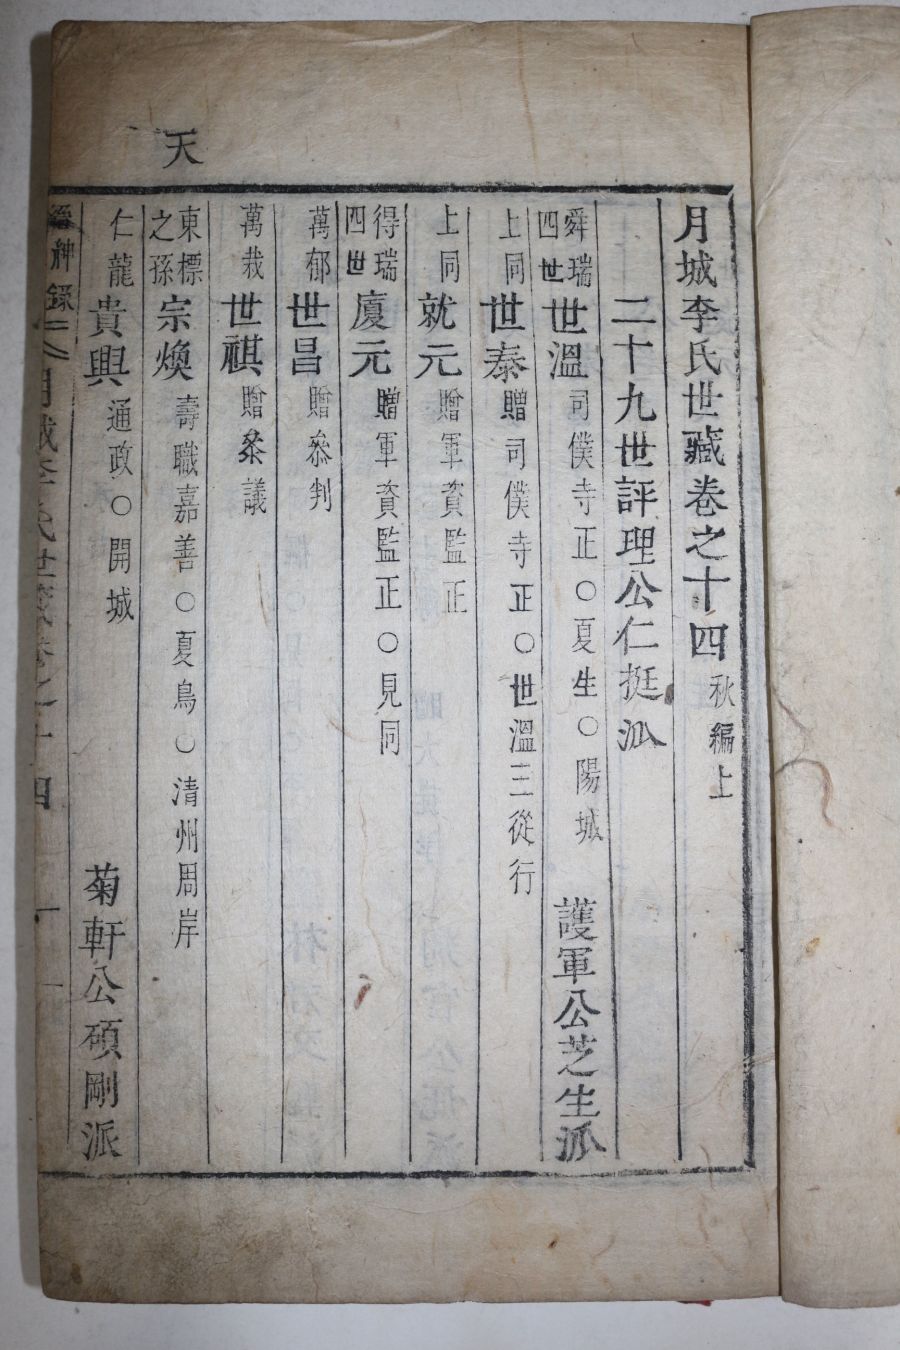 天
月城李氏世藏卷之十四 秋編上
二十九世評理公仁挺派
舜瑞四世 世溫 司僕寺正○夏生○陽城 護軍公芝生派
上同 世泰 贈司僕寺正○世溫三從行
上同 就元 贈軍資監正
得瑞四世 廈元 贈軍資監正○見同
萬郁 世昌 贈叅判
萬栽 世祺 贈叅議
東標之孫 宗煥 壽職嘉善○夏鳥○清州周岸
仁龍 貴興 通政○開城 菊軒公碩剛派
紳錄 月城李氏世藏卷之十四 一